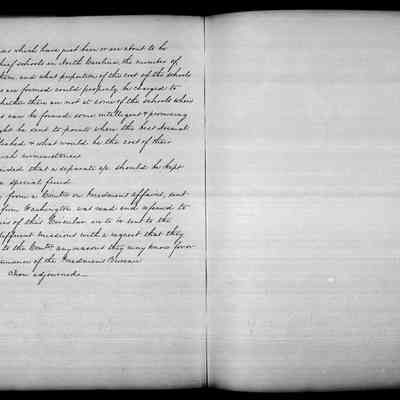 which have just been or are about to be
schools in North Carolina, the number of
and what proportion of the cost of the schools
are formed would properly be charged to
whether there are not at some of the schools where
can be found some intelligent & promising
might be sent to points where the best Normal
& what would be the cost of their
such circumstances
that a separate a/c should be kept
a special fund.
from a Comtee on Freedmens affairs, sent
from Washington was read and referred to
of this Circular as to is sent to the
different missions with a request that they
to the Comtee any reasons they may know for or
of the Freedmens Bureau
Then adjourned.